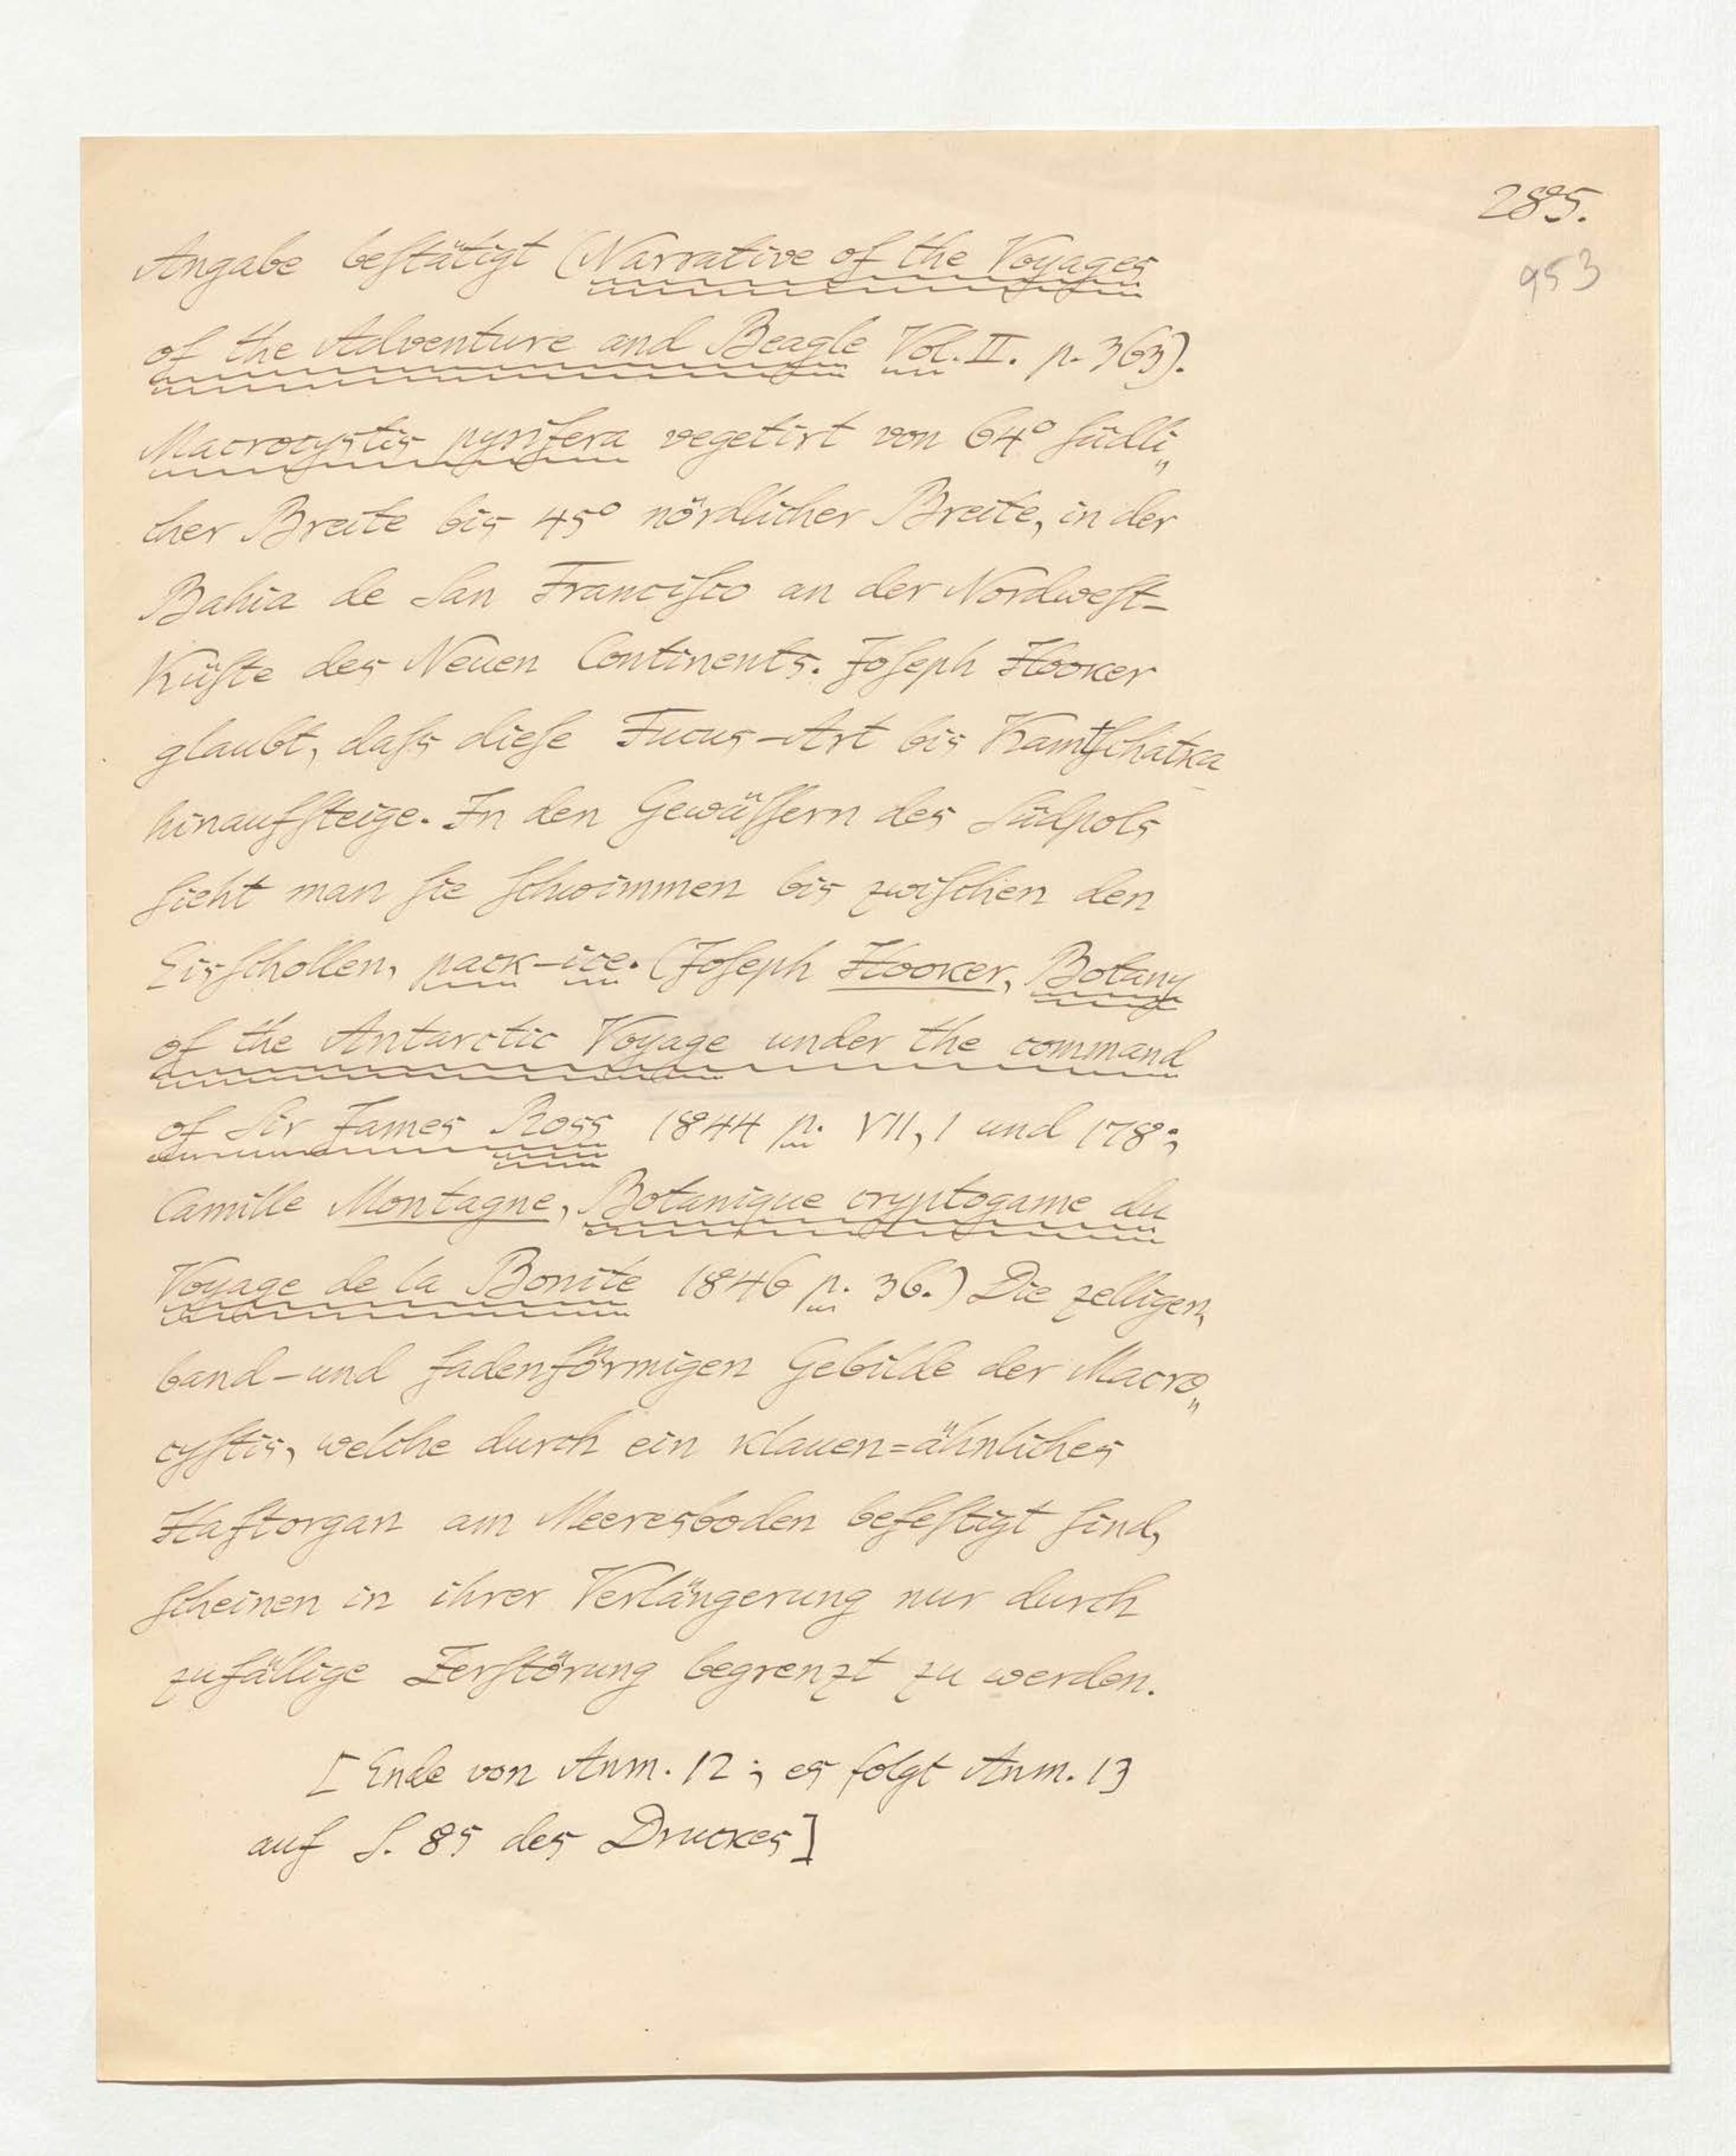 285.
953
Angabe beſtätigt (Narrative of the Voyages
of the Adventure and Beagle Vol. II. p. 363).
Macrocystis pyrifera vegetirt von 64° ſüdli„
cher Breite bis 45° nördlicher Breite, in der
Bahia de San Franciſco an der Nordweſt-
Küſte des Neuen Continents. Joſeph Hooker
glaubt, daſs dieſe Fucus-Art bis Kamtſchatka
hinaufſteige. In den Gewäſſern des Südpols
ſieht man ſie ſchwimmen bis zwiſchen den
Eisſchollen, pack-ice. (Joſeph Hooker, Botany
of the Antarctic Voyage under the command
of Sir James Ross 1844 p. VII, 1 und 178;
Camille Montagne, Botanique cryptogame du
Voyage de la Bonite 1846 p. 36.) Die zelligen,
band-und fadenförmigen Gebilde der Macro„
cyſtis, welche durch ein klauen=ähnliches
Haftorgan am Meeresboden befeſtigt ſind,
ſcheinen in ihrer Verlängerung nur durch
zufällige Zerſtörung begrenzt zu werden.
[Ende von Anm. 12; es folgt Anm. 13
auf S. 85 des Druckes]